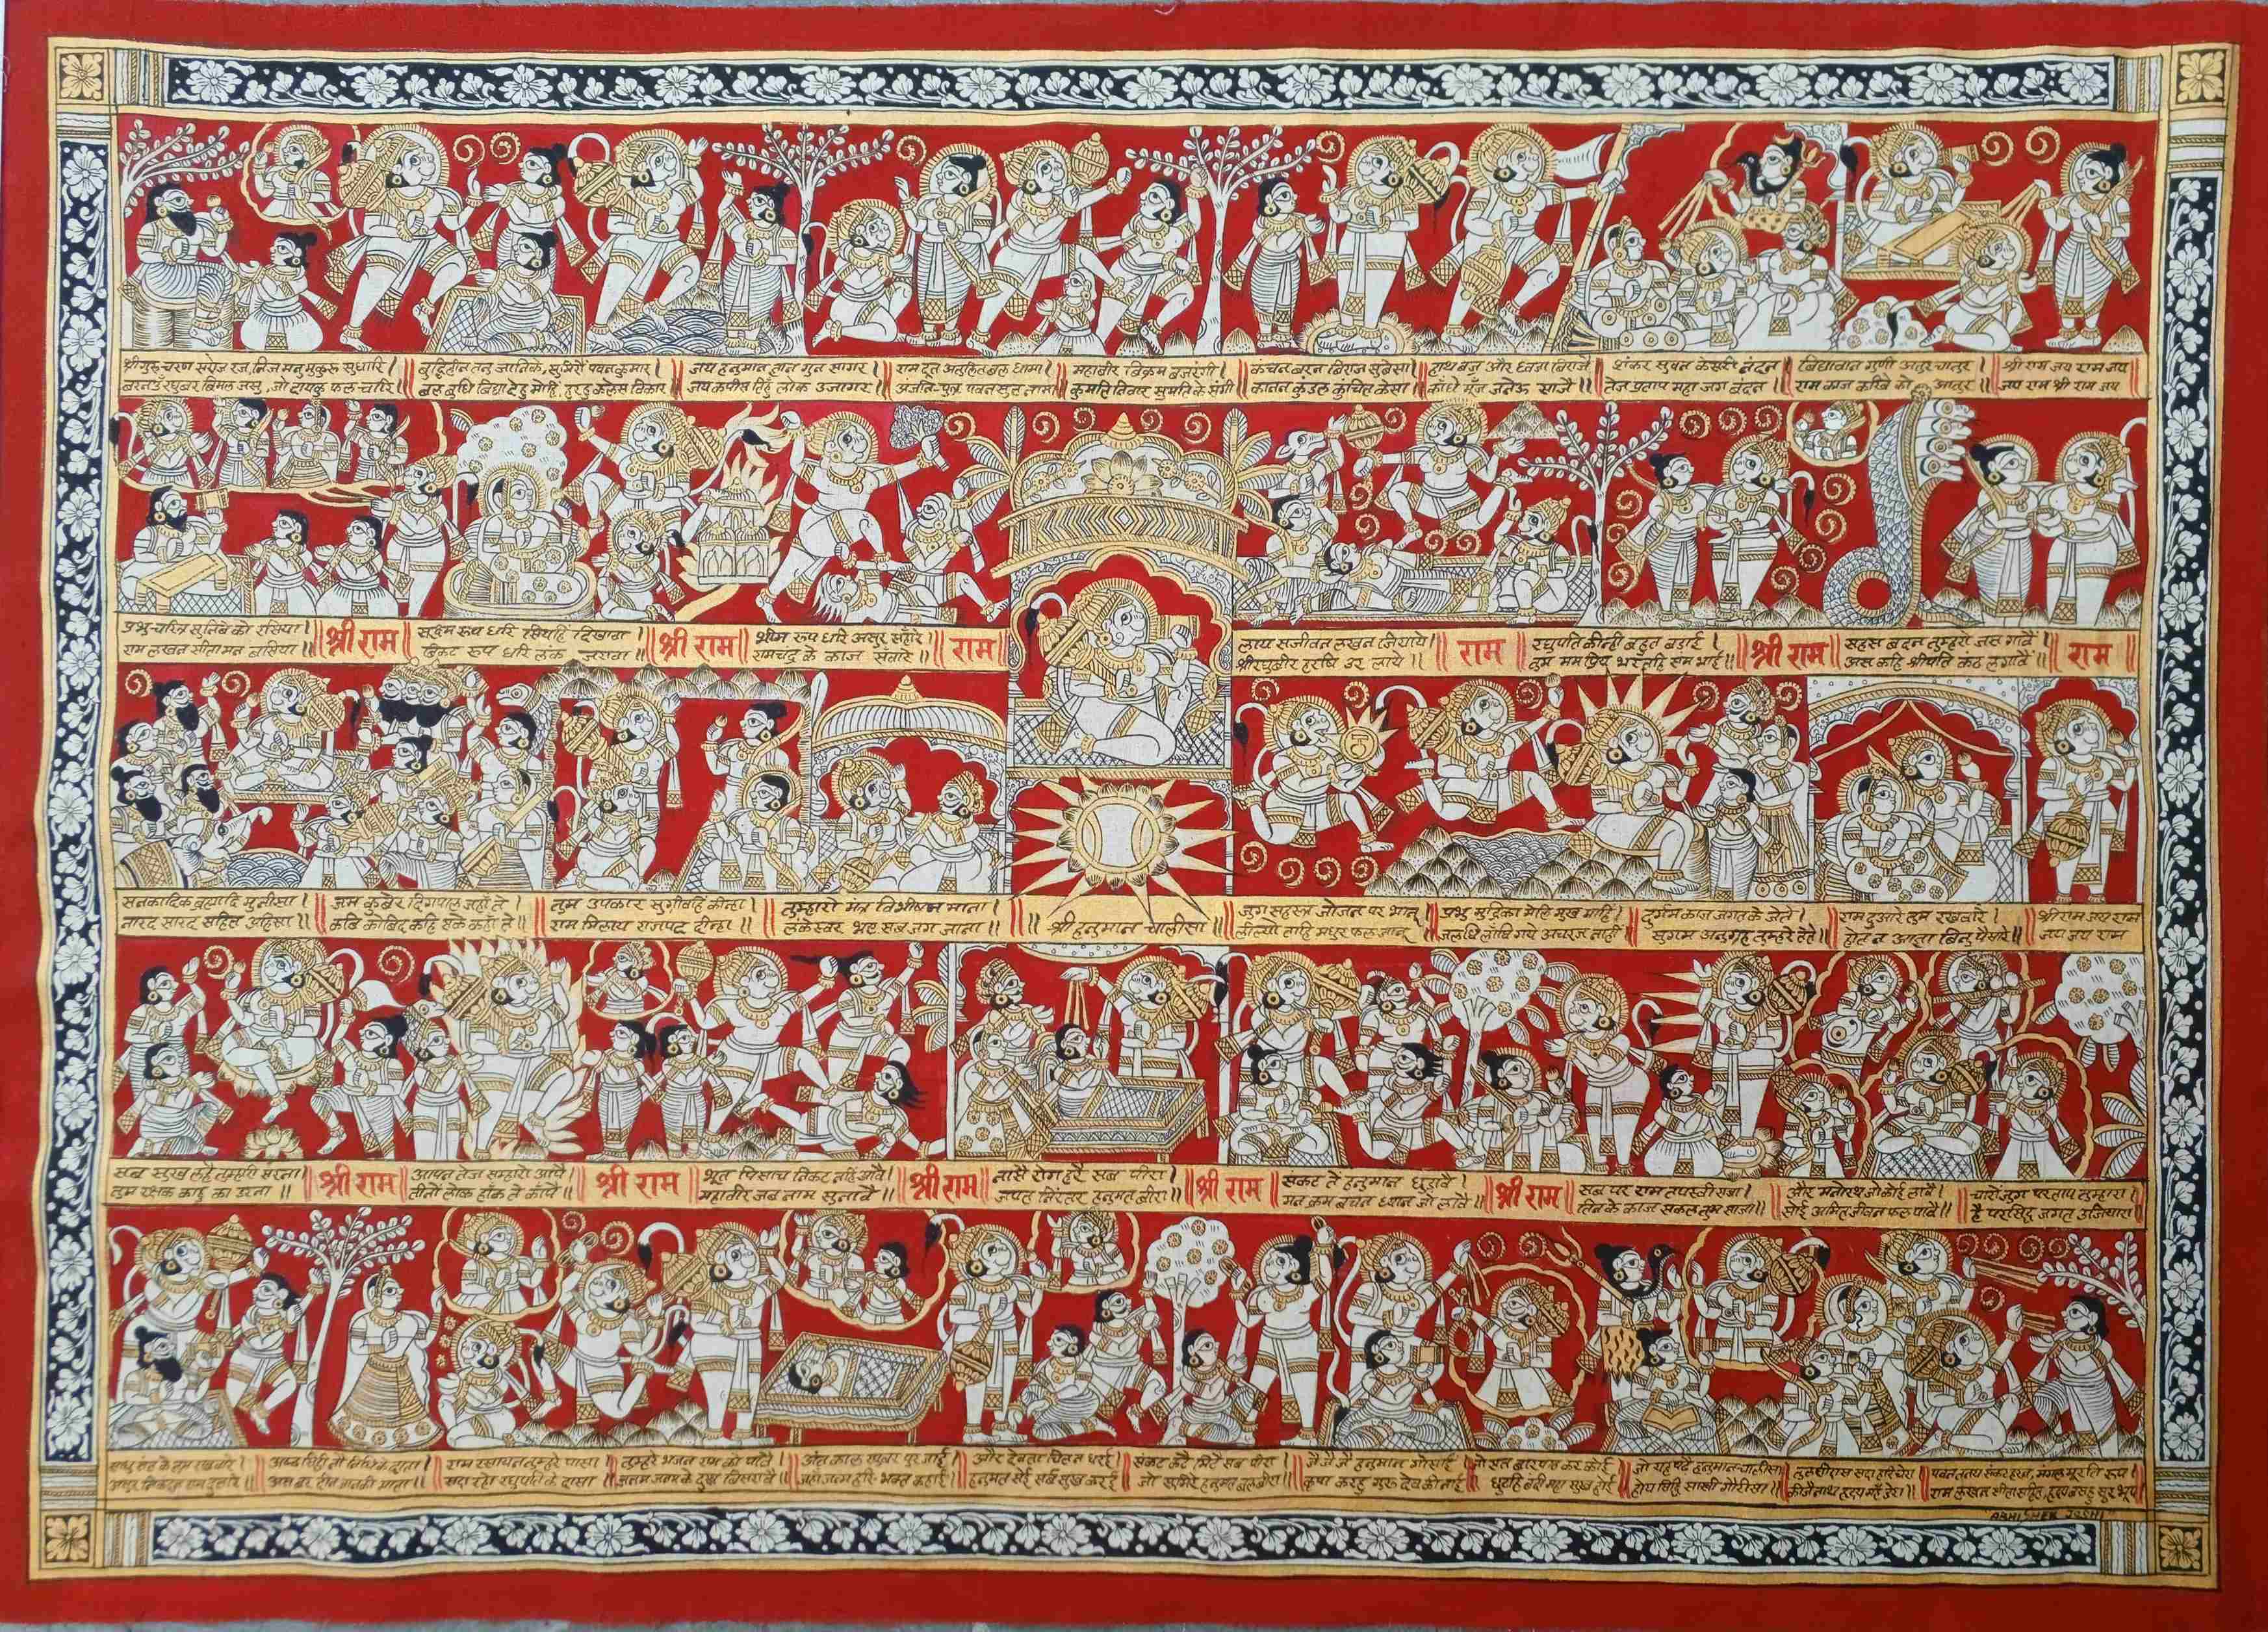 श्रीगुरु चरण सरोज रज, निज मनु मुकुरु सुधारि।
बरनउँ रघुबर बिमल जसु, जो दायकु फल चारि॥
बुद्धिहीन तनु जानिके, सुमिरौं पवन कुमार।
बल बुधि बिद्या देहु मोहि, हरहु कलेस विकार॥
जय हनुमान ज्ञान गुन सागर।
जय कपीस तिहुँ लोक उजागर॥
राम दूत अतुलित बल धामा।
अंजनि-पुत्र पवनसुत नामा॥
महाबीर बिक्रम बजरंगी।
कुमति निवार सुमति के संगी॥
कंचन बरन बिराज सुबेसा।
कानन कुंडल कुंचित केसा॥
हाथ बज्र और ध्वजा बिराजै।
काँधे मूँज जनेऊ साजै॥
शंकर सुवन केसरी नंदन।
तेज प्रताप महा जग बंदन॥
बिद्यावान गुणी अति चातुर।
राम काज करिबे को आतुर॥
श्री राम जय राम जय
जय राम श्री राम जय
प्रभु चरित्र सुनिबे को रसिया।
राम लखन सीता मन बसिया॥
श्री राम
सूक्ष्म रूप धरि सियहिं दिखावा।
बिकट रूप धरि लंक जरावा॥
श्री राम
भीम रूप धरि असुर सँहारे।
रामचंद्र के काज संवारे॥
राम
लाय सजीवन लखन जियाये।
श्रीरघुबीर हरषि उर लाये॥
राम
रघुपति कीन्ही बहुत बड़ाई।
तुम मम प्रिय भरतहि सम भाई॥
श्री राम
सहस बदन तुम्हरो जस गावैं।
अस कहि श्रीपति कंठ लगावैं॥
राम
सनकादिक ब्रह्मादि मुनीसा।
नारद सारद सहित अहिसा॥
जम कुबेर दिगपाल जहाँ ते।
कबि कोबिद कहि सके कहाँ ते॥
तुम उपकार सुग्रीवहिं कीन्हा।
राम मिलाय राजपद दीन्हा॥
तुम्हारो मंत्र विभीषन माना।
लंकेस्वर भए सब जग जाना॥
श्री हनुमान चालीसा
जुग सहस्त्र जोजन पर भानू।
लील्यो ताहि मधुर फल जानू॥
प्रभु मुद्रिका मेलि मुख माहीं।
जलधि लाँघि गये अचरज नाहीं॥
दुर्गम काज जगत के जेते।
सुगम अनुग्रह तुम्हरे तेते॥
राम दुआरे तुम रखवारे।
होत न आज्ञा बिनु पैसारे॥
श्रीराम जय राम
जय जय राम
सब सुख लहै तुम्हारी सरना।
तुम रक्षक काहू को डरना॥
श्री राम
आपन तेज सम्हारो आपै।
तीनों लोक हाँक ते काँपै॥
श्री राम
भूत पिसाच निकट नहिं आवै।
महाबीर जब नाम सुनावै॥
श्री राम
नासै रोग हरै सब पीरा।
जपत निरंतर हनुमत बीरा॥
श्री राम
संकट तें हनुमान छुड़ावै।
मन क्रम बचन ध्यान जो लावै॥
श्री राम
सब पर राम तपस्वी राजा।
तिन के काज सकल तुम साजा॥
और मनोरथ जो कोई लावै।
सोई अमित जीवन फल पावै॥
चारों जुग परताप तुम्हारा।
है परसिद्ध जगत उजियारा॥
साधु संत के तुम रखवारे।
असुर निकंदन राम दुलारे॥
अष्ट सिद्धि नौ निधि के दाता।
अस बर दीन जानकी माता॥
राम रसायन तुम्हरे पासा।
सदा रहो रघुपति के दासा॥
तुम्हरे भजन राम को पावै।
जनम जनम के दुख बिसरावै॥
अंत काल रघुबर पुर जाई।
जहाँ जन्म हरि-भक्त कहाई॥
और देवता चित्त न धरई।
हनुमत सेई सर्ब सुख करई॥
संकट कटै मिटै सब पीरा।
जो सुमिरै हनुमत बलबीरा॥
जै जै जै हनुमान गोसाईं।
कृपा करहु गुरु देव की नाईं॥
जो सत बार पाठ कर कोई।
छूटहि बंदी महा सुख होई॥
जो यह पढ़ै हनुमान चालीसा।
होय सिद्धि साखी गौरीसा॥
तुलसीदास सदा हरि चेरा।
कीजै नाथ हृदय महँ डेरा॥
पवनतनय संकट हरन, मंगल मूरति रूप।
राम लखन सीता सहित, हृदय बसहु सुर भूप॥
ABHISHEK JOSHI